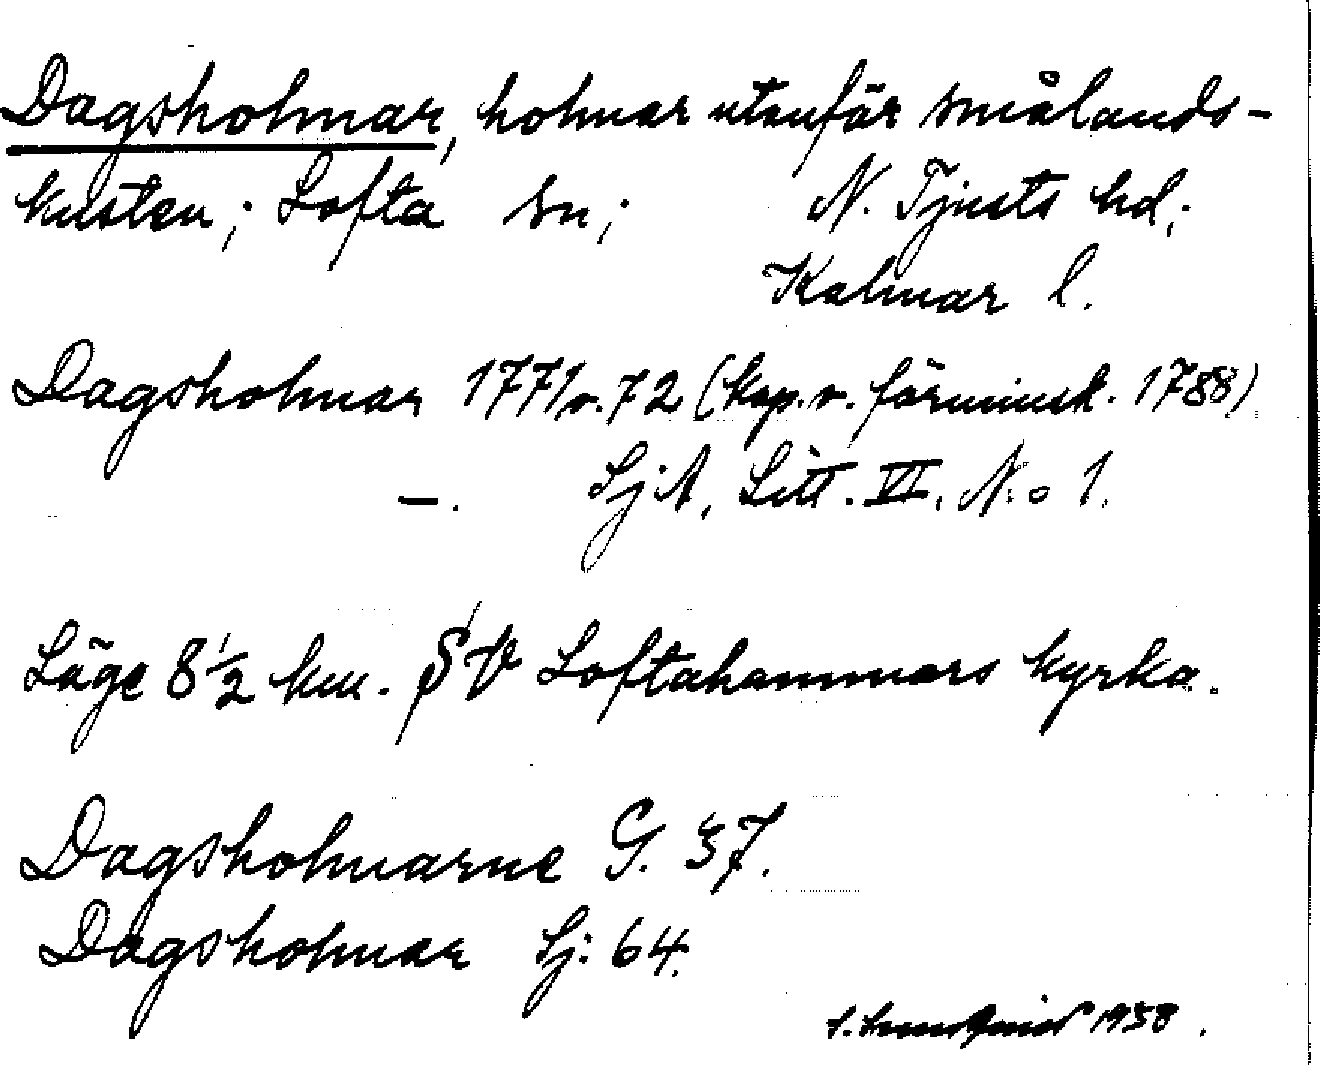 Dagsholmar, holmar utanför smålands-
kusten; Lofta sn; N. Tjusts hd;
Kalmar l.
Dagsholmar 1771 o. 72 (kop. o. förminsk. 1788)
—. SjA, Litt. VI, No 1.
Läge 8 1/2 km. SV Loftahammars kyrka.
Dagsholmarne G. 37.
Dagsholmar Sj: 64.
1938.